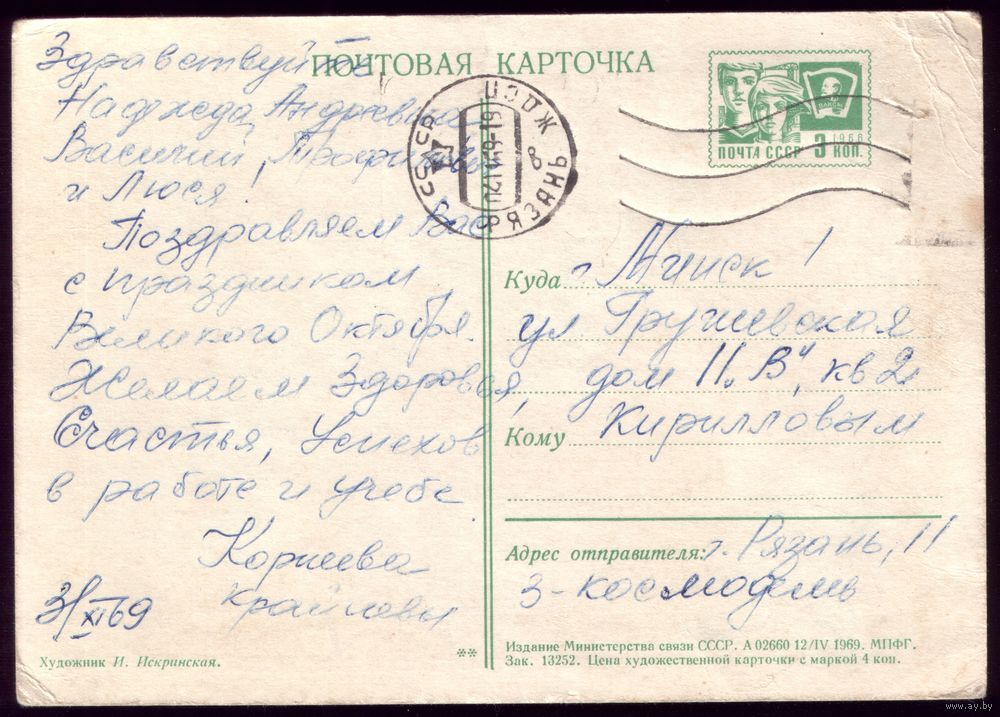 ПОЧТОВАЯ КАРТОЧКА
Здравствуйте
Надежда Андреевна
Василий,
и Люся!
Поздравляем Вас
с праздником
Великого Октября.
Желаем Здоровья,
Счастья, Успехов
в работе и учебе.
Корнеева
3/XI 69
Художник И. Искринская.
**
СССР
РЯЗАНЬ
8
ВЛКСМ
1966
ПОЧТА СССР 3 КОП.
Куда г. Минск!
ул Грушевская
дом 11 „В", кв 2
Кому Кирилловым
Адрес отправителя: г. Рязань, 11
Издание Министерства связи СССР. А 02660 12/IV 1969. МПФГ.
Зак. 13252. Цена художественной карточки с маркой 4 коп.
www.ay.by